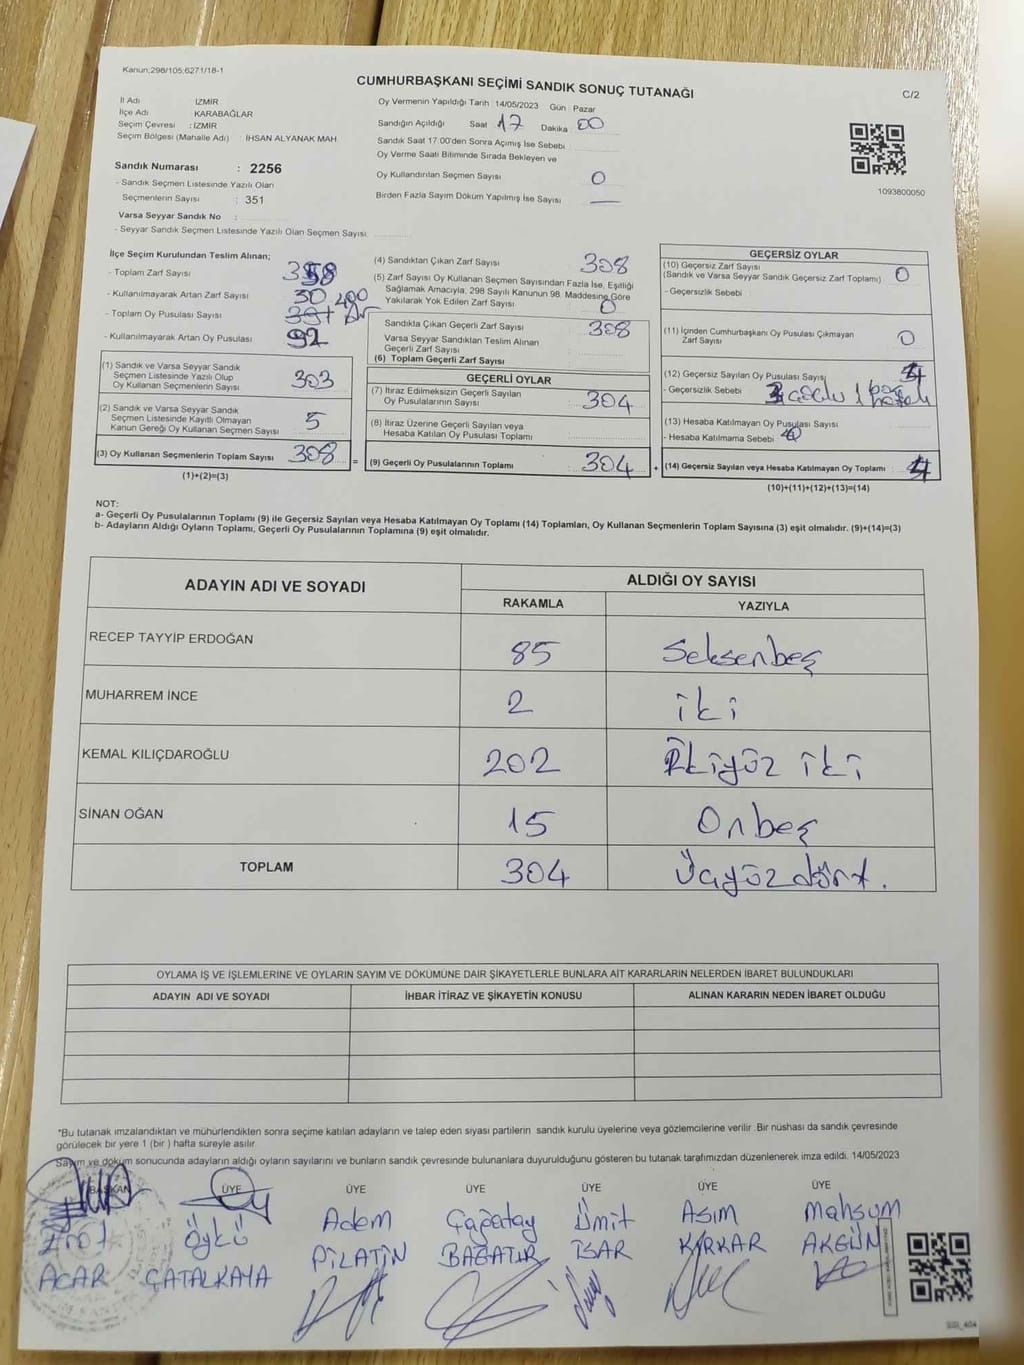 Kanun;298/105;6271/18-1
CUMHURBAŞKANI SEÇİMİ SANDIK SONUÇ TUTANAĞI
C/2
İl Adı İZMİR
İlçe Adı KARABAĞLAR
Seçim Çevresi : İZMİR
Seçim Bölgesi (Mahalle Adı) : İHSAN ALYANAK MAH.
Sandık Numarası : 2256
- Sandık Seçmen Listesinde Yazılı Olan
Seçmenlerin Sayısı : 351
Varsa Seyyar Sandık No :
- Seyyar Sandık Seçmen Listesinde Yazılı Olan Seçmen Sayısı:
Oy Vermenin Yapıldığı Tarih : 14/05/2023 Gün : Pazar
Sandığın Açıldığı Saat 17 Dakika 00
Sandık Saat 17:00'den Sonra Açılmış İse Sebebi :
Oy Verme Saati Bitiminde Sırada Bekleyen ve
Oy Kullandırılan Seçmen Sayısı 0
Birden Fazla Sayım Döküm Yapılmış İse Sayısı —
1093800050
İlçe Seçim Kurulundan Teslim Alınan;
- Toplam Zarf Sayısı
- Kullanılmayarak Artan Zarf Sayısı 30
- Toplam Oy Pusulası Sayısı 400
- Kullanılmayarak Artan Oy Pusulası 92
(1) Sandık ve Varsa Seyyar Sandık
Seçmen Listesinde Yazılı Olup
Oy Kullanan Seçmenlerin Sayısı 303
(2) Sandık ve Varsa Seyyar Sandık
Seçmen Listesinde Kayıtlı Olmayan
Kanun Gereği Oy Kullanan Seçmen Sayısı 5
(3) Oy Kullanan Seçmenlerin Toplam Sayısı 308
(1)+(2)=(3)
(4) Sandıktan Çıkan Zarf Sayısı 308
(5) Zarf Sayısı Oy Kullanan Seçmen Sayısından Fazla İse, Eşitliği
Sağlamak Amacıyla, 298 Sayılı Kanunun 98. Maddesine Göre
Yakılarak Yok Edilen Zarf Sayısı 0
Sandıkta Çıkan Geçerli Zarf Sayısı 308
Varsa Seyyar Sandıktan Teslim Alınan
Geçerli Zarf Sayısı
(6) Toplam Geçerli Zarf Sayısı
GEÇERLİ OYLAR
(7) İtiraz Edilmeksizin Geçerli Sayılan
Oy Pusulalarının Sayısı 304
(8) İtiraz Üzerine Geçerli Sayılan veya
Hesaba Katılan Oy Pusulası Toplamı
= (9) Geçerli Oy Pusulalarının Toplamı 304 +
GEÇERSİZ OYLAR
(10) Geçersiz Zarf Sayısı
(Sandık ve Varsa Seyyar Sandık Geçersiz Zarf Toplamı) : 0
- Geçersizlik Sebebi :
(11) İçinden Cumhurbaşkanı Oy Pusulası Çıkmayan
Zarf Sayısı 0
(12) Geçersiz Sayılan Oy Pusulası Sayısı 4
- Geçersizlik Sebebi
(13) Hesaba Katılmayan Oy Pusulası Sayısı :
- Hesaba Katılmama Sebebi
(14) Geçersiz Sayılan veya Hesaba Katılmayan Oy Toplamı : 4
(10)+(11)+(12)+(13)=(14)
NOT:
a- Geçerli Oy Pusulalarının Toplamı (9) ile Geçersiz Sayılan veya Hesaba Katılmayan Oy Toplamı (14) Toplamları, Oy Kullanan Seçmenlerin Toplam Sayısına (3) eşit olmalıdır. (9)+(14)=(3)
b- Adayların Aldığı Oyların Toplamı, Geçerli Oy Pusulalarının Toplamına (9) eşit olmalıdır.
ADAYIN ADI VE SOYADI ALDIĞI OY SAYISI
RAKAMLA YAZIYLA
RECEP TAYYİP ERDOĞAN 85 Seksenbeş
MUHARREM İNCE 2 iki
KEMAL KILIÇDAROĞLU 202 İkiyüz iki
SİNAN OĞAN 15 Onbeş
TOPLAM 304 Üçyüz dört.
OYLAMA İŞ VE İŞLEMLERİNE VE OYLARIN SAYIM VE DÖKÜMÜNE DAİR ŞİKAYETLERLE BUNLARA AİT KARARLARIN NELERDEN İBARET BULUNDUKLARI
ADAYIN ADI VE SOYADI İHBAR İTİRAZ VE ŞİKAYETİN KONUSU ALINAN KARARIN NEDEN İBARET OLDUĞU
*Bu tutanak imzalandıktan ve mühürlendikten sonra seçime katılan adayların ve talep eden siyasi partilerin sandık kurulu üyelerine veya gözlemcilerine verilir. Bir nüshası da sandık çevresinde
görülecek bir yere 1 (bir) hafta süreyle asılır.
Sayım ve döküm sonucunda adayların aldığı oyların sayılarını ve bunların sandık çevresinde bulunanlara duyurulduğunu gösteren bu tutanak tarafımızdan düzenlenerek imza edildi. 14/05/2023
BAŞKAN ÜYE ÜYE ÜYE ÜYE ÜYE ÜYE
Öykü Adem Çağatay Ümit Asım Mahsum
ACAR ÇATALKAYA PİLATİN BAĞATUR İSAR KIRKAR AKGÜN